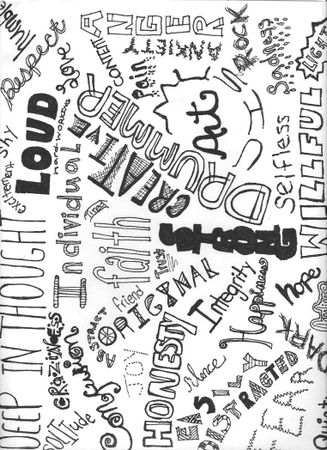 humble
Respect
love
CONTENT
ANGER
ANXIETY
Pain
PUNK
ROCK
Sadness
LIGHT
shy
excitement
LOUD
hard-working
Individual
CREATIVE
DRUMMER
Art
Selfless
WILLFUL
DEEP IN THOUGHT
Timid
faith
STRONG
Trust
Friend
ORIGINAL
Integrity
Happiness
hope
CRAZINESS
ABSTRACT
JOY
HONESTY
Silence
EASILY
DISTRACTED
DARK
FEAR
Quiet
SOLITUDE
Confusion